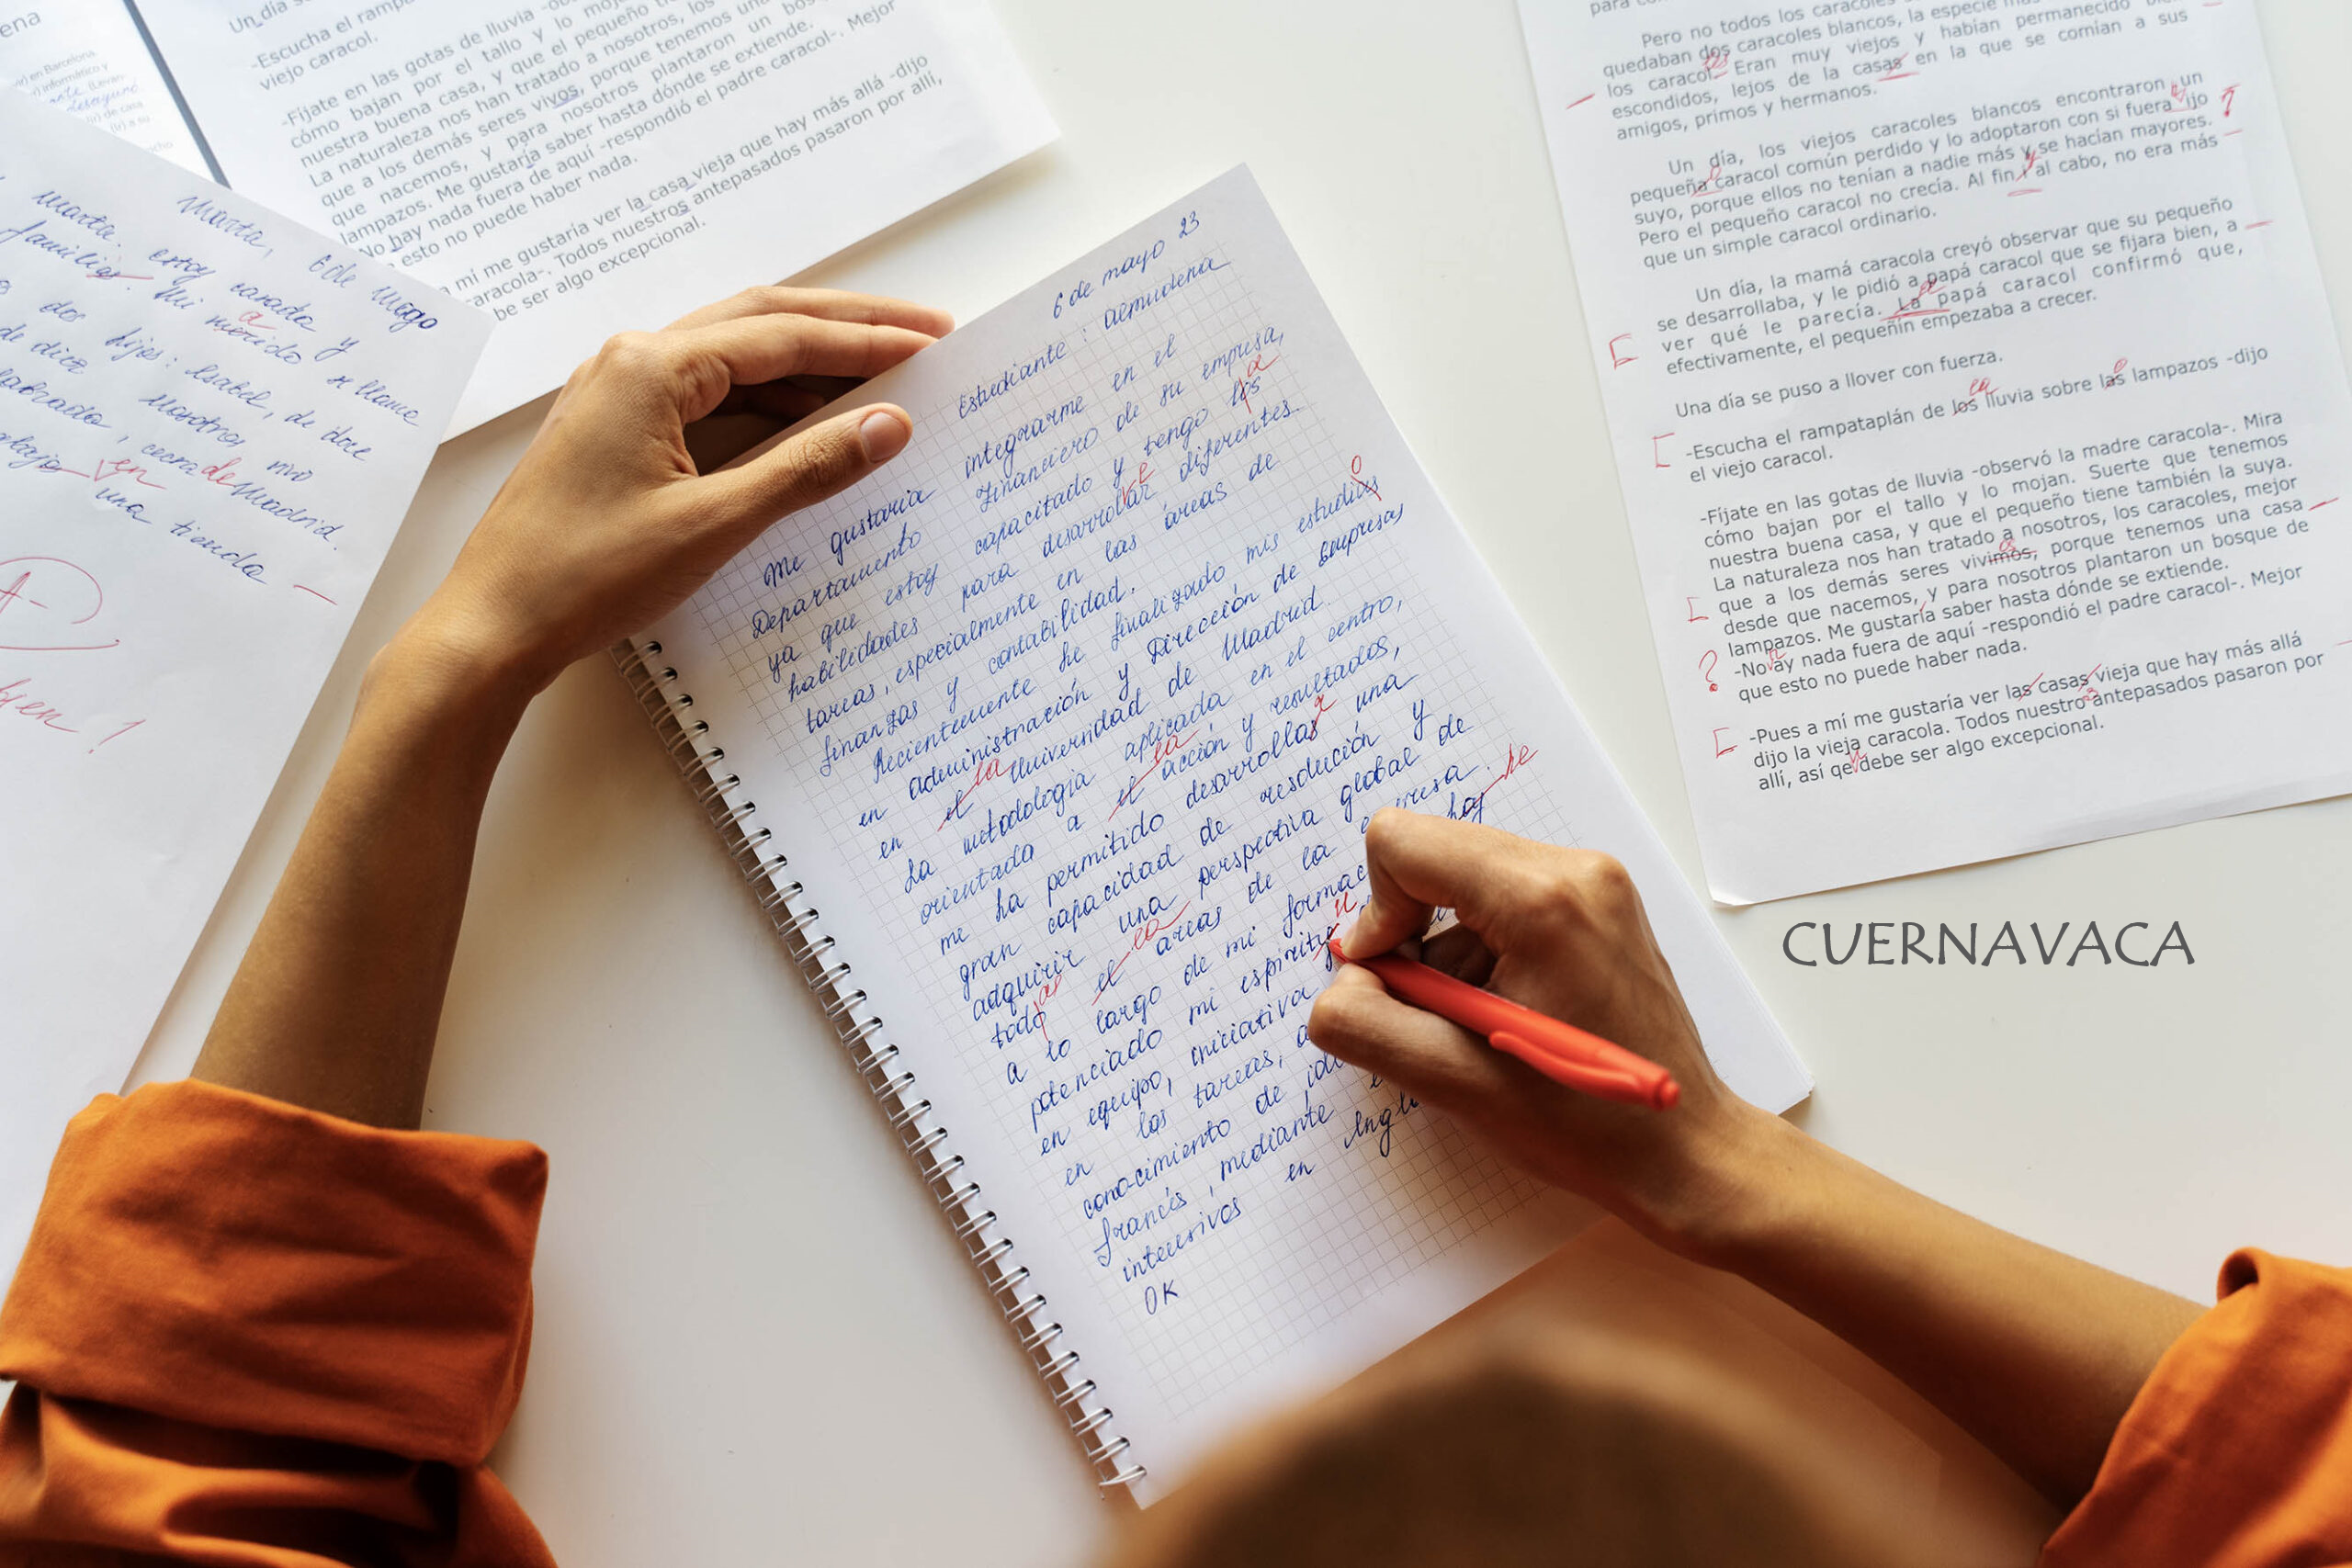 ena
vir) en Barcelona
v) informático y
(Levan-
desayuno
(v) de casa
(v) a su
Un día s
-Escucha el rampa
viejo caracol.
-Fíjate en las gotas de lluvia -ob
cómo bajan por el tallo y lo moj
nuestra buena casa, y que el pequeño t
La naturaleza nos han tratado a nosotros, los
que a los demás seres vivos, porque tenemos una
que nacemos, y para nosotros plantaron un bos
lampazos. Me gustaría saber hasta dónde se extiende.
No hay nada fuera de aquí -respondió el padre caracol-. Mejor
esto no puede haber nada.
a mí me gustaría ver la casa vieja que hay más allá -dijo
aracola-. Todos nuestros antepasados pasaron por allí,
be ser algo excepcional.
Marta, 6 de mayo
Marta. estoy casada y
familias. Mi marido se llama
dos hijos: Isabel, de doce
de diez Nosotros vivo
cerca de Madrid.
en una tienda
A-
bien!
6 de mayo 23
Estudiante: Almudena
Me gustaria integrarme en el
Departamento Financiero de su empresa,
ya que estoy capacitado y tengo los a
habilidades para desarrollar ve diferentes
tareas, especialmente en las áreas de
finanzas y contabilidad.
Recientemente he finalizado mis estudias o
en administración y Dirección de Empresas
en el la Universidad de Madrid.
La metodologia aplicada en el centro,
orientada a el la acción y resultados,
me ha permitido desarrollas r una
gran capacidad de resolución y
adquirir una perspectiva global de
todo as el la areas de la empresa.
a lo largo de mi formac haj he
potenciado mi espiritu
en equipo, iniciativa
en las tareas, a
conocimiento de idi
francés, mediante e
intensivos en Ingl
OK
para con
Pero no todos los caracoles
quedaban dos caracoles blancos, la especie más
los caracol. Eran muy viejos y habían permanecido bien
escondidos, lejos de la casas en la que se comían a sus
amigos, primos y hermanos.
Un día, los viejos caracoles blancos encontraron un
pequeña caracol común perdido y lo adoptaron con si fuera ijo ?
suyo, porque ellos no tenían a nadie más y se hacían mayores.
Pero el pequeño caracol no crecía. Al fin y al cabo, no era más
que un simple caracol ordinario.
Un día, la mamá caracola creyó observar que su pequeño
se desarrollaba, y le pidió a papá caracol que se fijara bien, a
ver qué le parecía. La papá caracol confirmó que,
efectivamente, el pequeñín empezaba a crecer.
Una día se puso a llover con fuerza.
-Escucha el rampataplán de los la lluvia sobre las o lampazos -dijo
el viejo caracol.
-Fíjate en las gotas de lluvia -observó la madre caracola-. Mira
cómo bajan por el tallo y lo mojan. Suerte que tenemos
nuestra buena casa, y que el pequeño tiene también la suya.
La naturaleza nos han tratado a nosotros, los caracoles, mejor
que a los demás seres vivimos, os porque tenemos una casa
desde que nacemos, y para nosotros plantaron un bosque de
lampazos. Me gustaría saber hasta dónde se extiende.
? -No ay nada fuera de aquí -respondió el padre caracol-. Mejor
que esto no puede haber nada.
-Pues a mí me gustaría ver las casas vieja que hay más allá
dijo la vieja caracola. Todos nuestro antepasados pasaron por
allí, así qe debe ser algo excepcional.
CUERNAVACA